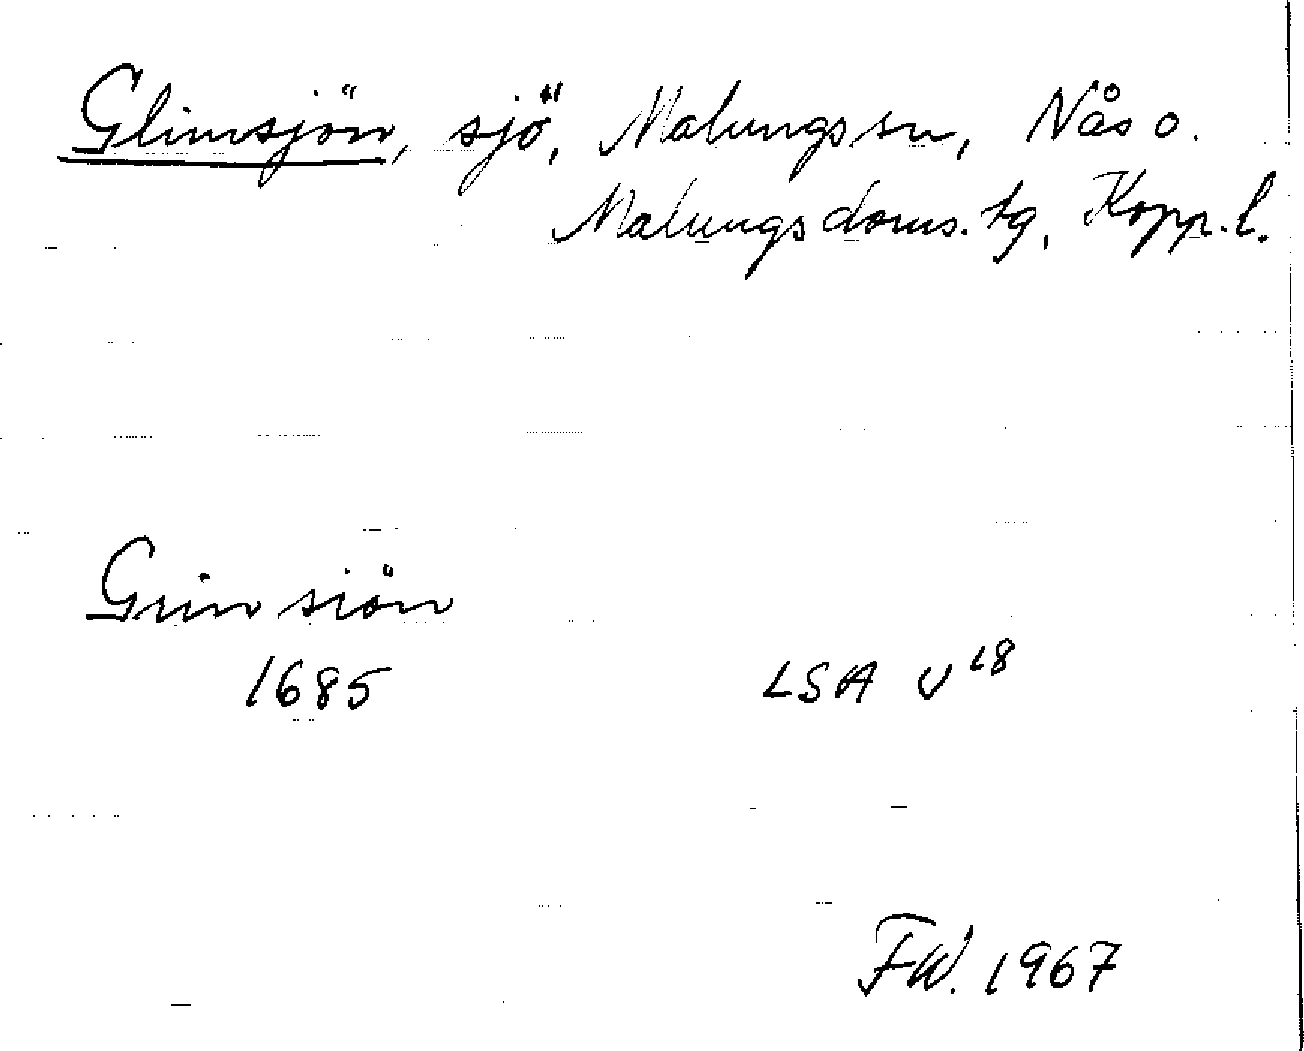 Glimsjön, sjö, Malungs sn, Nås o.
Malungs doms. tg, Kopp. l.
Grin siön
1685 LSA V 18
FW. 1967